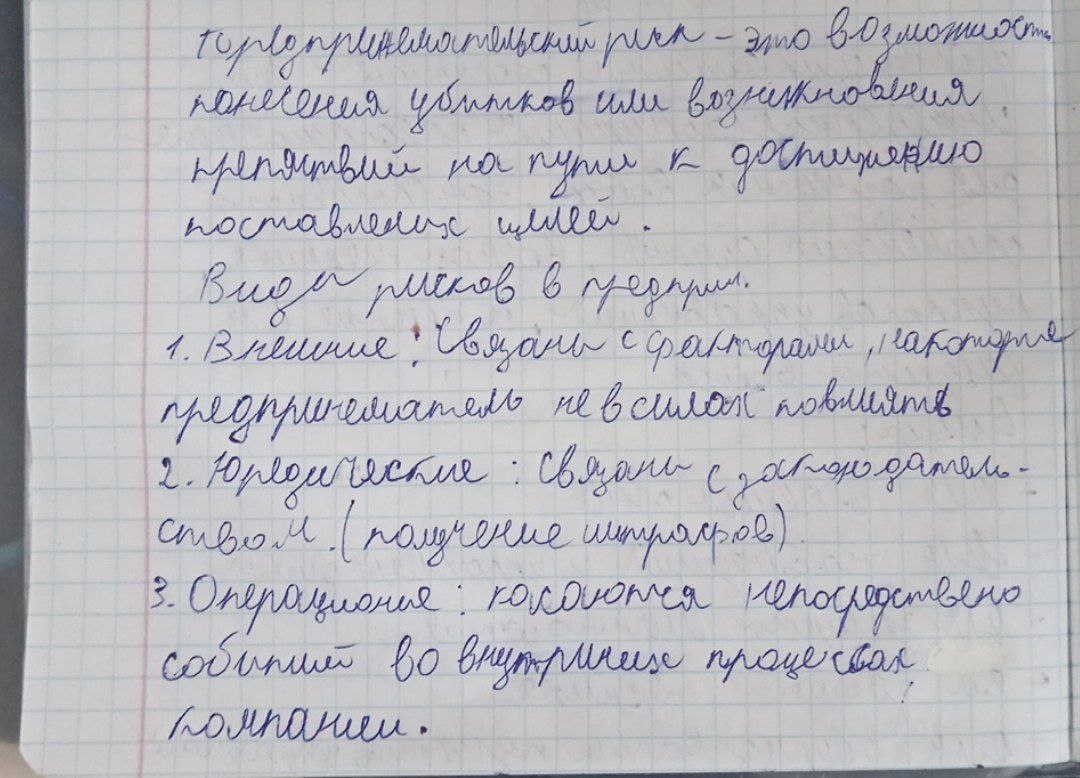 Предпринемательский риск - это возможность
понесения убытков или возникновения
препятствий на пути к достижению
поставленых целей.
Виды рисков в предприн.
1. Внешние: Связаны с факторами, на которые
предпринематель не в силах повлиять
2. Юредические: связаны с законодатель-
ством. (получение штрафов)
3. Операционые: касаются непосредствено
событий во внутриних процессах
компании.